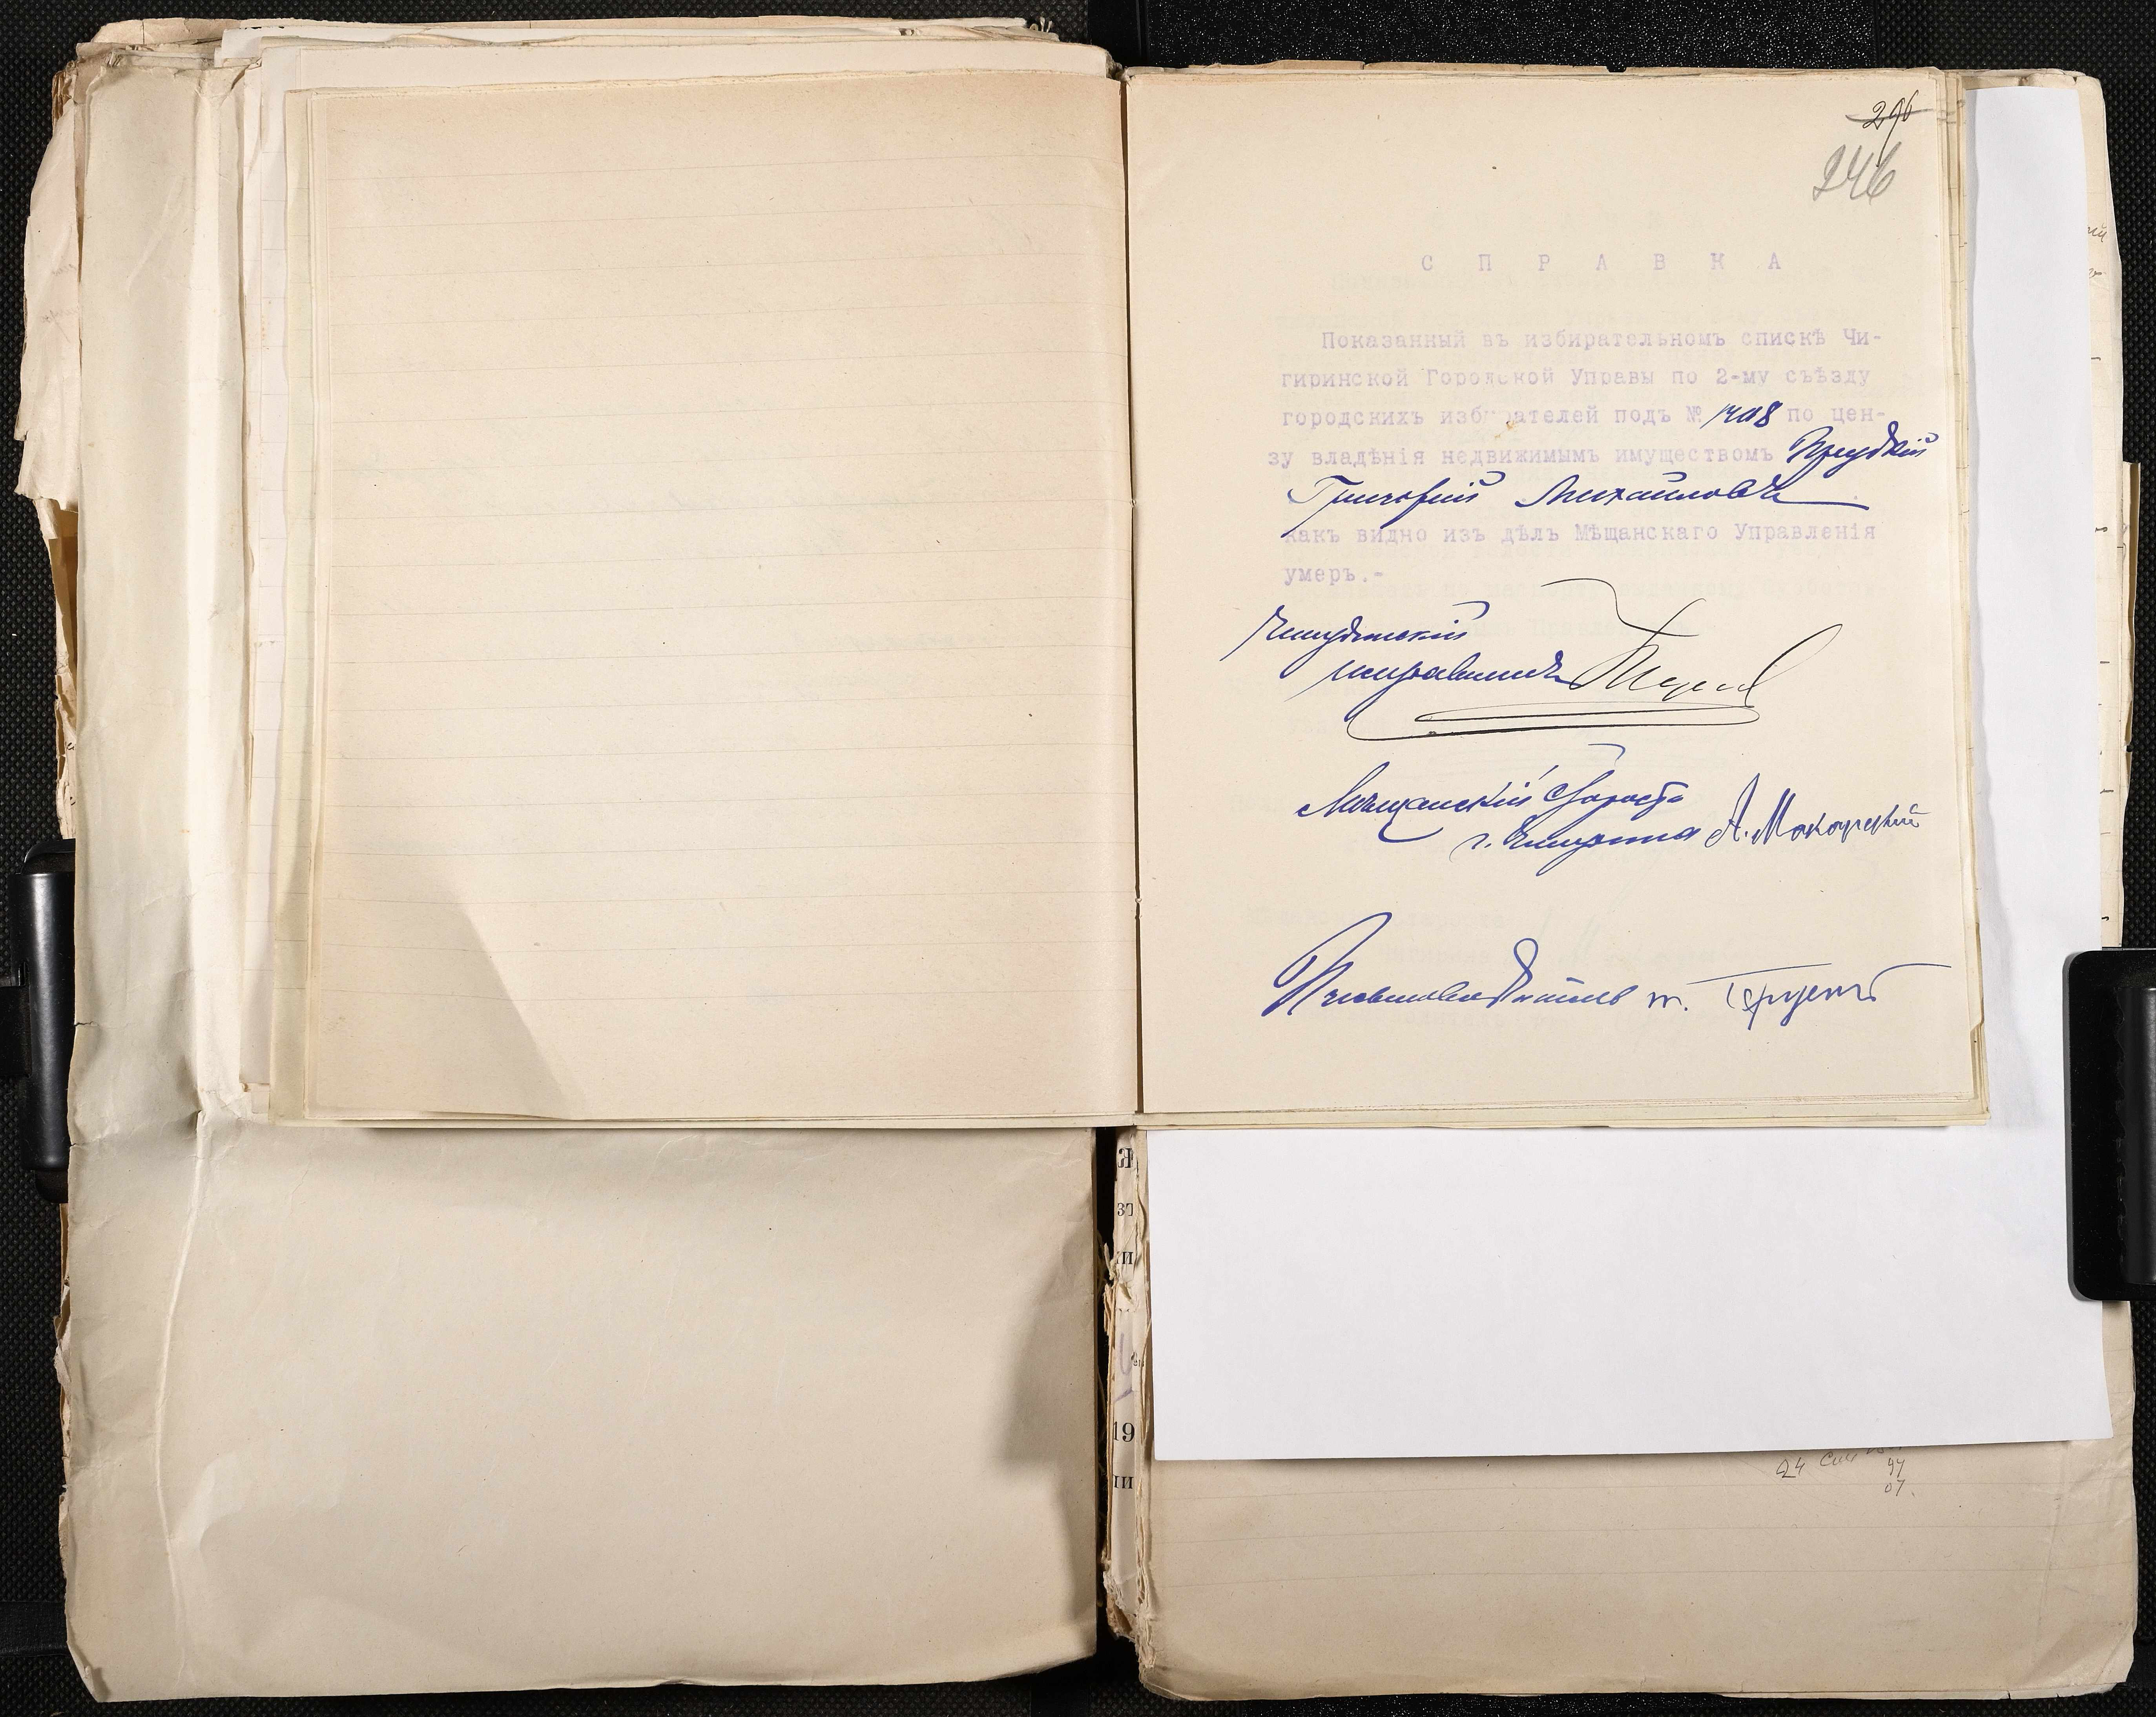 296
246
С П Р А В К А
Показанный въ избирательномъ спискѣ Чи-
гиринской Городской Управы по 2-му съѣзду
городскихъ избирателей подъ № 1708 по цен-
зу владѣнія недвижимымъ имуществомъ
Григорій Михайловъ
какъ видно изъ дѣлъ Мѣщанскаго Управленія
умеръ.-
Чигиринскій
исправникъ
Мѣщанскій Староста
г. Чигирина А. Макаревскій
Письмоводитель
19
24
07.